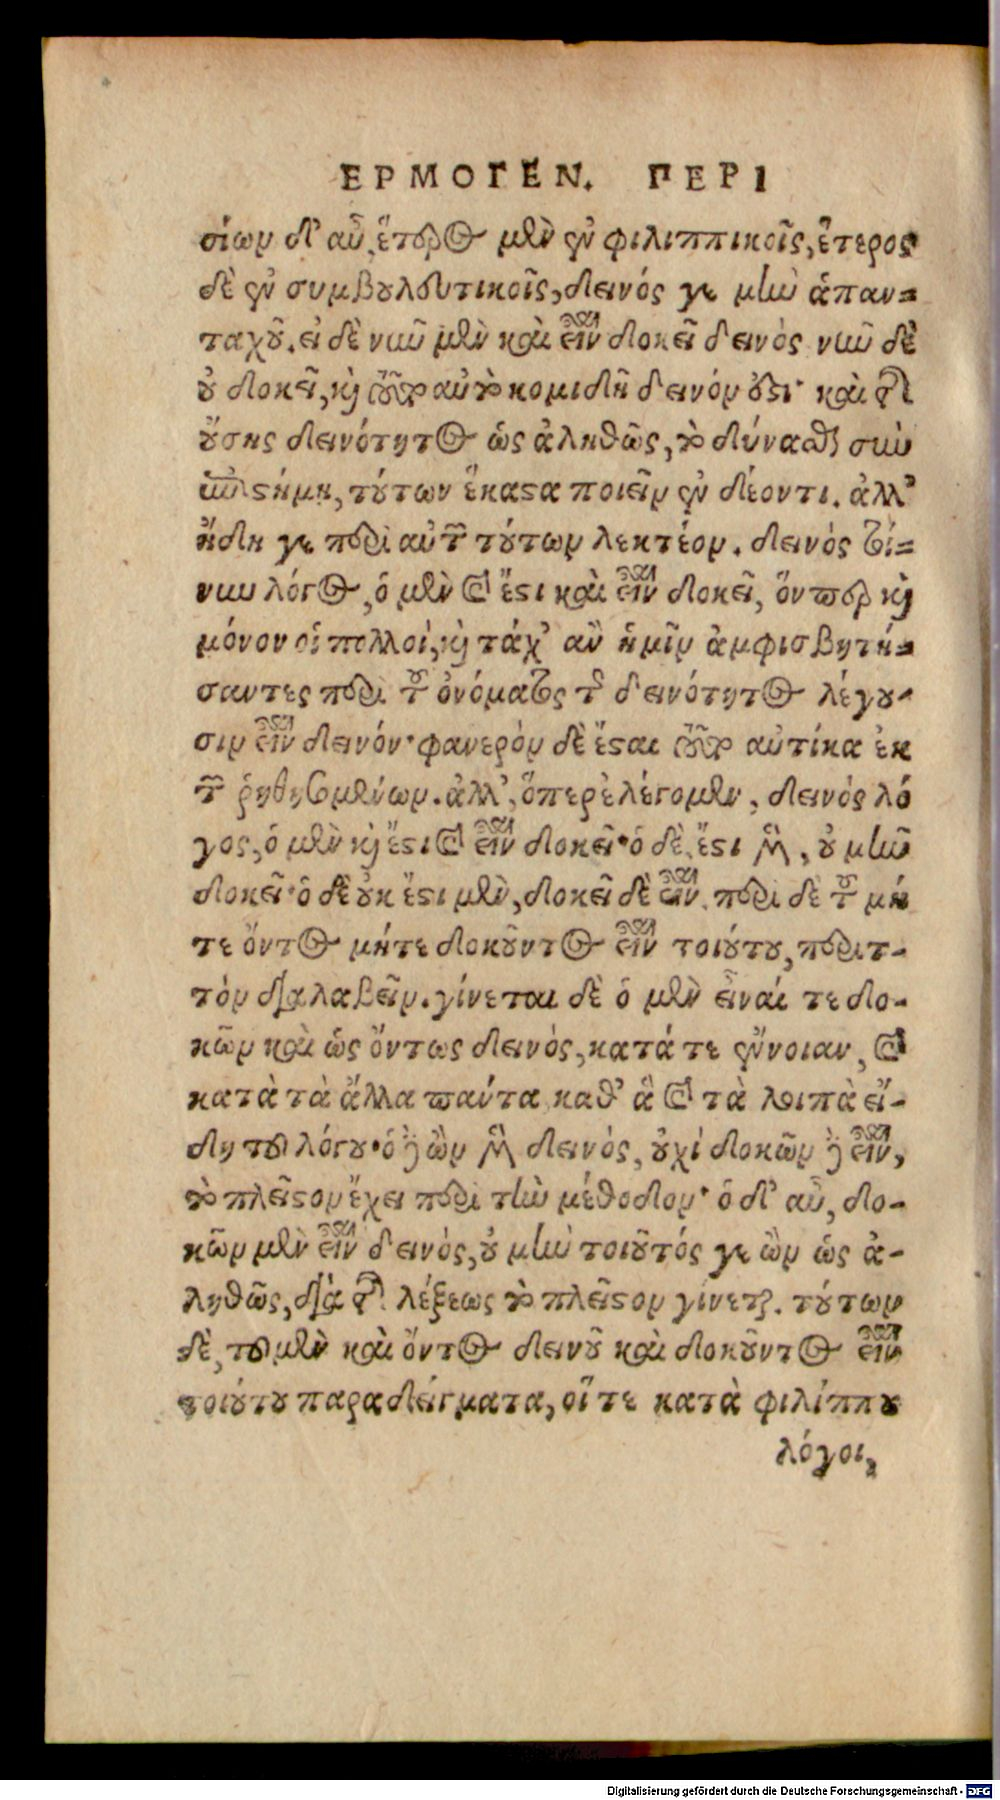 ΕΡΜΟΓΕΝ. ΠΕΡΙ
σίων δ' αὖ, ἕτερος μὲν ἐν φιλιππικοῖς, ἕτερος
δὲ ἐν συμβουλευτικοῖς, δεινός γε μὴν ἁπαν=
ταχοῦ. εἰ δὲ νῦν μὲν καὶ εἶναι δοκεῖ δεινὸς νῦν δὲ
οὐ δοκεῖ, καὶ τοῦτο αὐτὸ κομιδῆ δεινόν ἐστι· καὶ τῆς
οὔσης δεινότητος ὡς ἀληθῶς, τὸ δύνασθαι σὺν
ἐπιστήμῃ, τούτων ἕκαστα ποιεῖν ἐν δέοντι. ἀλλ'
ἤδη γε περὶ αὐτῶν τούτων λεκτέον. δεινὸς τοί=
νυν λόγος, ὁ μὲν καὶ ἔστι καὶ εἶναι δοκεῖ, ὅνπερ καὶ
μόνον οἱ πολλοί, καὶ τάχ' ἂν ἡμῖν ἀμφισβητή=
σαντες περὶ τοῦ ὀνόματος τῆς δεινότητος λέγου-
σιν εἶναι δεινόν· φανερὸν δὲ ἔσται τοῦτο αὐτίκα ἐκ
τῶν ῥηθησομένων. ἀλλ', ὅπερ ἐλέγομεν, δεινὸς λό
γος, ὁ μὲν καὶ ἔστι καὶ εἶναι δοκεῖ· ὁ δὲ, ἔστι μὲν, οὐ μὴν
δοκεῖ· ὁ δὲ οὐκ ἔστι μὲν, δοκεῖ δὲ εἶναι. περὶ δὲ τοῦ μή
τε ὄντος μήτε δοκοῦντος εἶναι τοιούτου, περιτ-
τὸν διαλαβεῖν. γίνεται δὲ ὁ μὲν εἶναί τε δο-
κῶν καὶ ὡς ὄντως δεινὸς, κατά τε ἔννοιαν, καὶ
κατὰ τὰ ἄλλα πάντα καθ' ἃ καὶ τὰ λοιπὰ εἴ-
δη τοῦ λόγου· ὁ δὲ ὢν μὲν δεινὸς, οὐχὶ δοκῶν δὲ εἶναι,
τὸ πλεῖστον ἔχει περὶ τὴν μέθοδον· ὁ δ' αὖ, δο-
κῶν μὲν εἶναι δεινὸς, οὐ μὴν τοιοῦτός γε ὢν ὡς ἀ-
ληθῶς, διὰ τῆς λέξεως τὸ πλεῖστον γίνεται. τούτων
δὲ, τοῦ μὲν καὶ ὄντος δεινοῦ καὶ δοκοῦντος εἶναι
τοιούτου παραδείγματα, οἵ τε κατὰ φιλίππου
λόγοι,
Digitalisierung gefördert durch die Deutsche Forschungsgemeinschaft - DFG